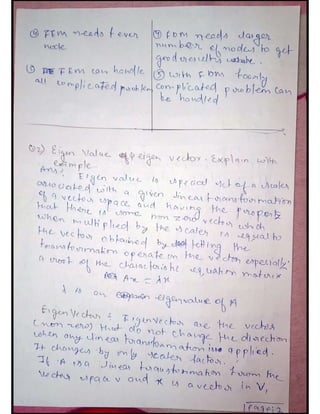 ④ FEM needs fewer
node
④ FDM needs larger
number of nodes to get
good results
⑤ FEM can handle
all complicated problem
⑤ with FDM
complicated problem can
be handled
Q2) Eigen Value eigen vector. Explain with
example
Ans: Eigen value is special set of a scaler
associated with a given linear transformation
of a vector space and having the property
that there is some non zero vector which
when multiplied by the scaler is equal to
the vector obtained by letting the
transformation operate on the vector especially:
a root of the characteristic equation matrix
Ax = λx
λ is an eigenvalue of A
Eigen Vectors : Eigenvector are the vectors
(non zero) that do not change the direction
when any linear transformation is applied.
It changes by only scaler factor.
If A is a linear transformation from the
vector space V and x is a vector in V,
Page: 2